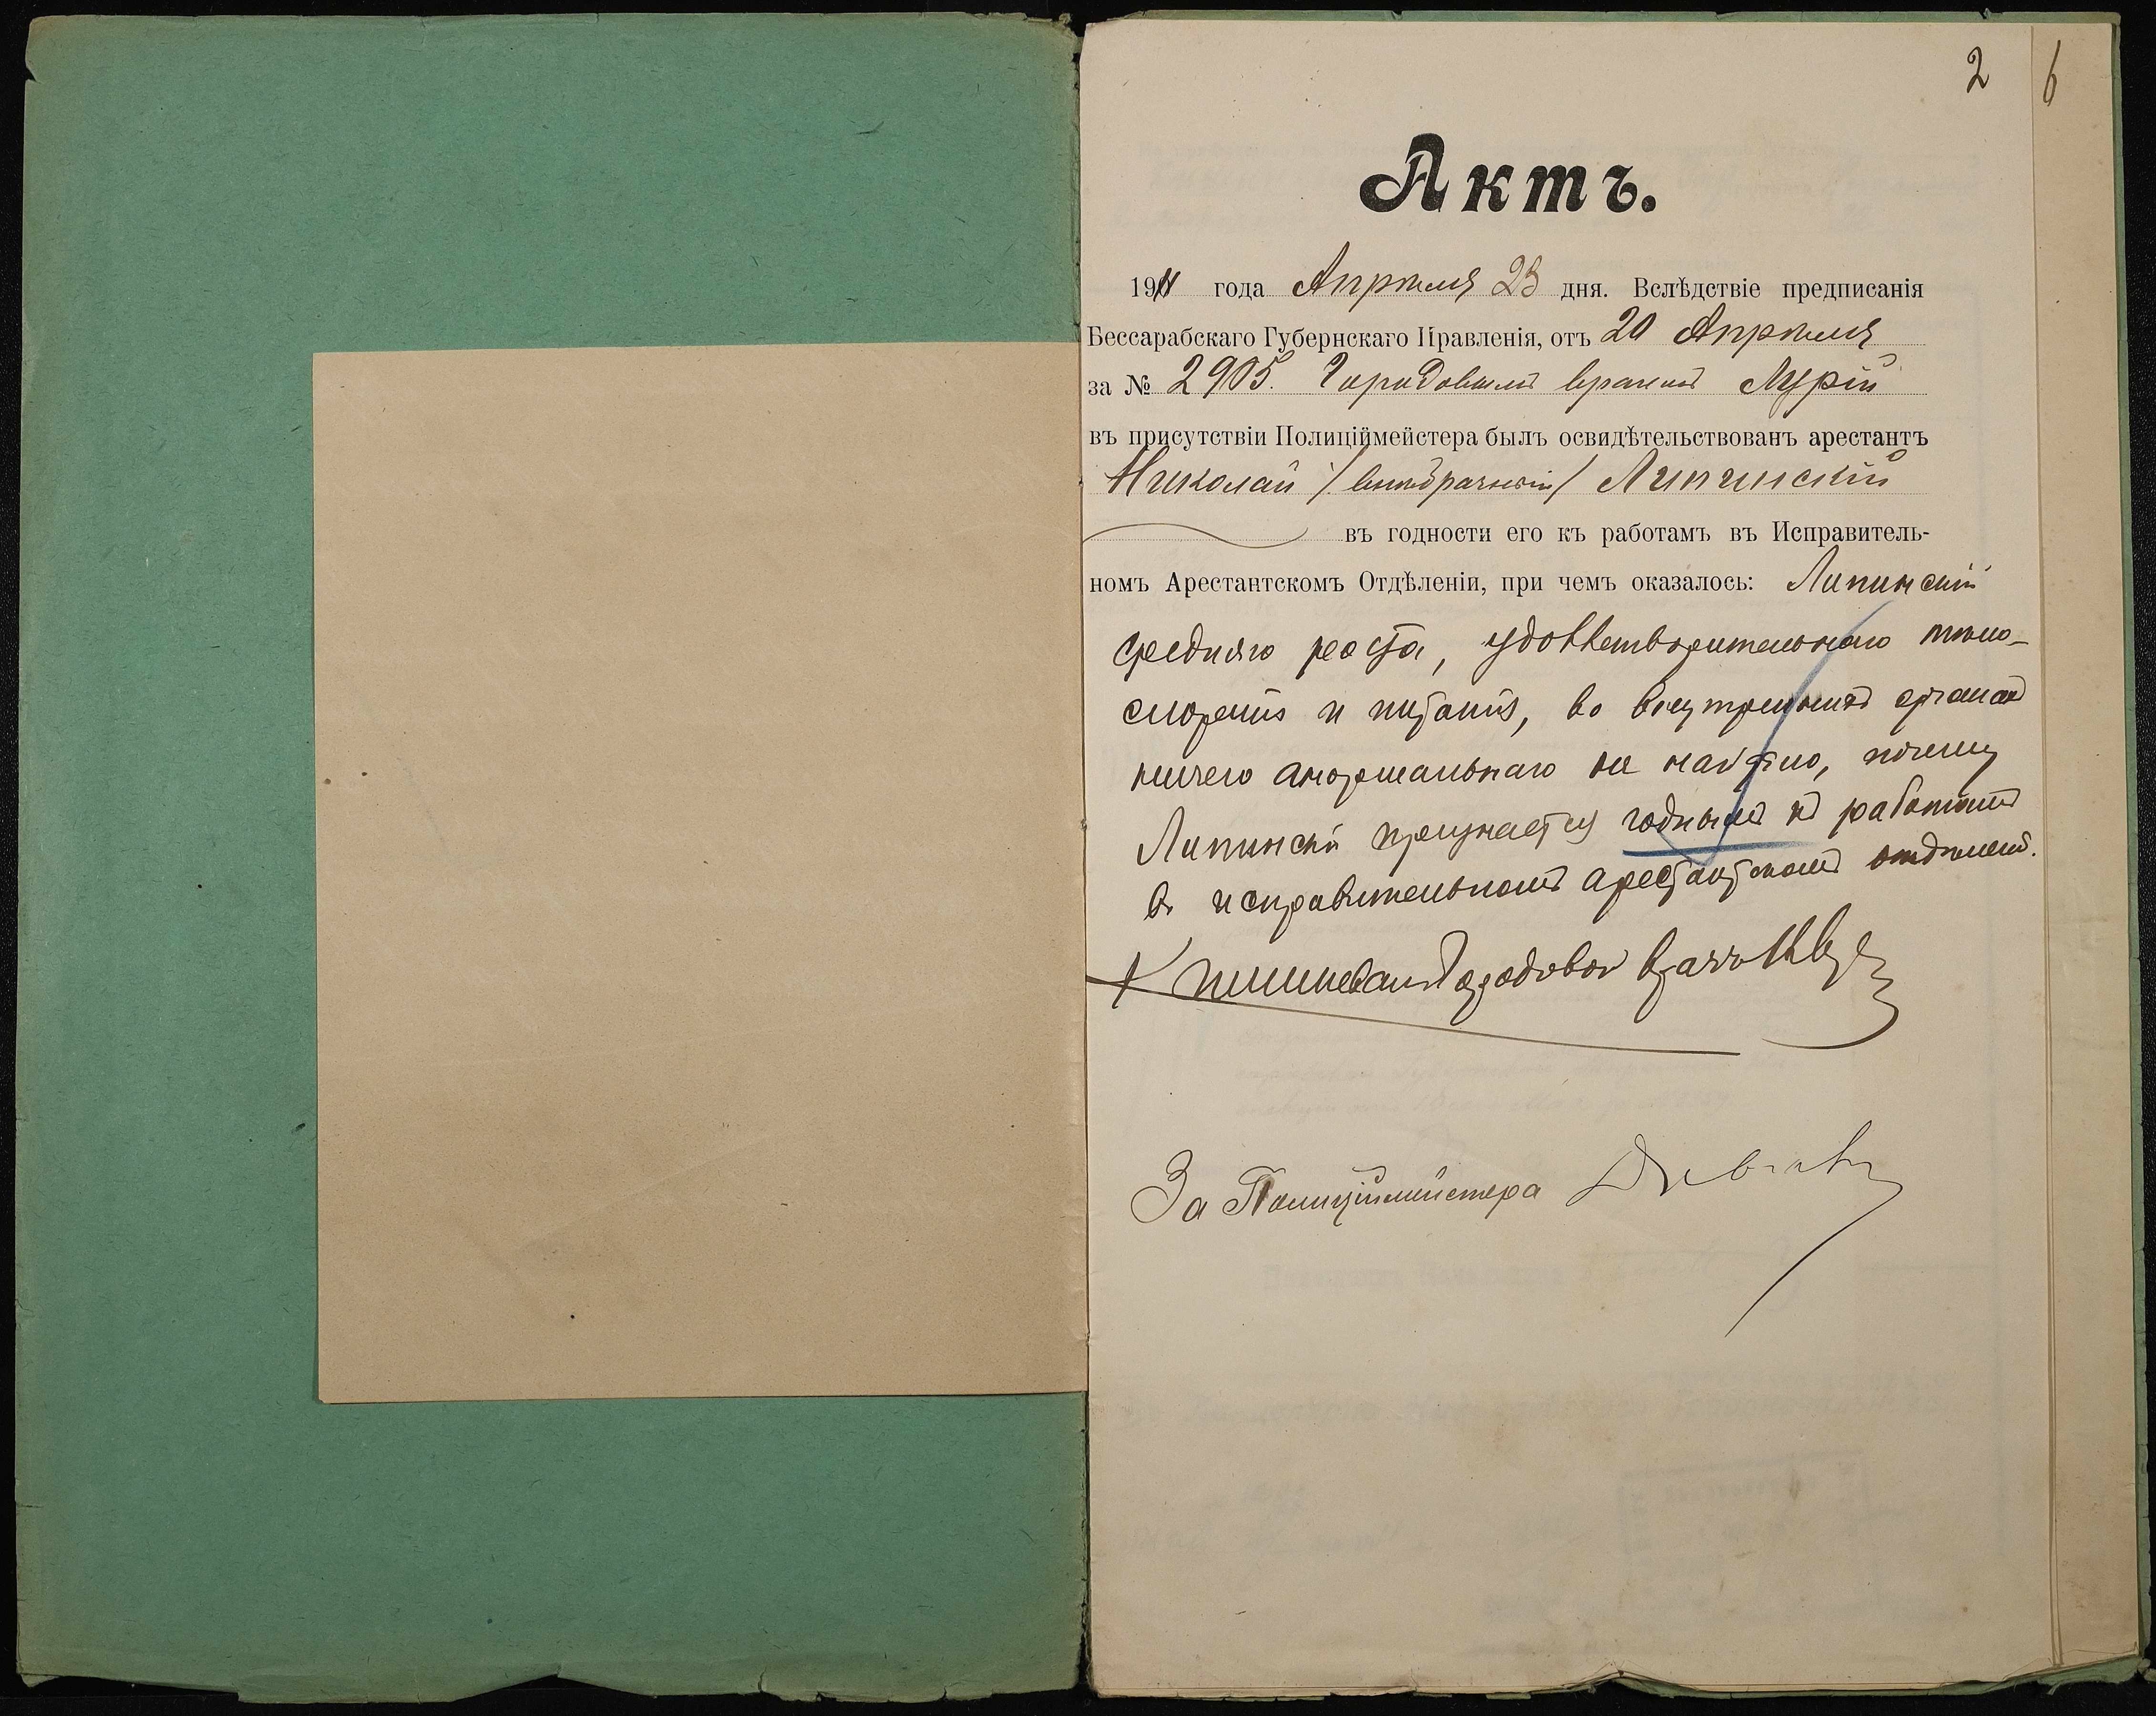 2 6
Актъ.
1911 года Апрѣля 23 дня. Вслѣдствіе предписанія
Бессарабскаго Губернскаго Правленія, отъ 20 Апрѣля
за № 2905. Городовымъ врачемъ Лурій
въ присутствіи Полиціймейстера былъ освидѣтельствованъ арестантъ
Николай /внѣбрачный/ Липинскій
въ годности его къ работамъ въ Исправитель-
номъ Арестантскомъ Отдѣленіи, при чемъ оказалось: Липинскій
средняго роста, удовлетворительнаго тѣло-
сложенія и питанія, во внутреннихъ органахъ
ничего анормальнаго не найдено, почему
Липинскій признается годнымъ къ работамъ
въ исправительномъ арестантскомъ отдѣлені.
Кишиневскій Городовой врачъ
За Полиціймейстера